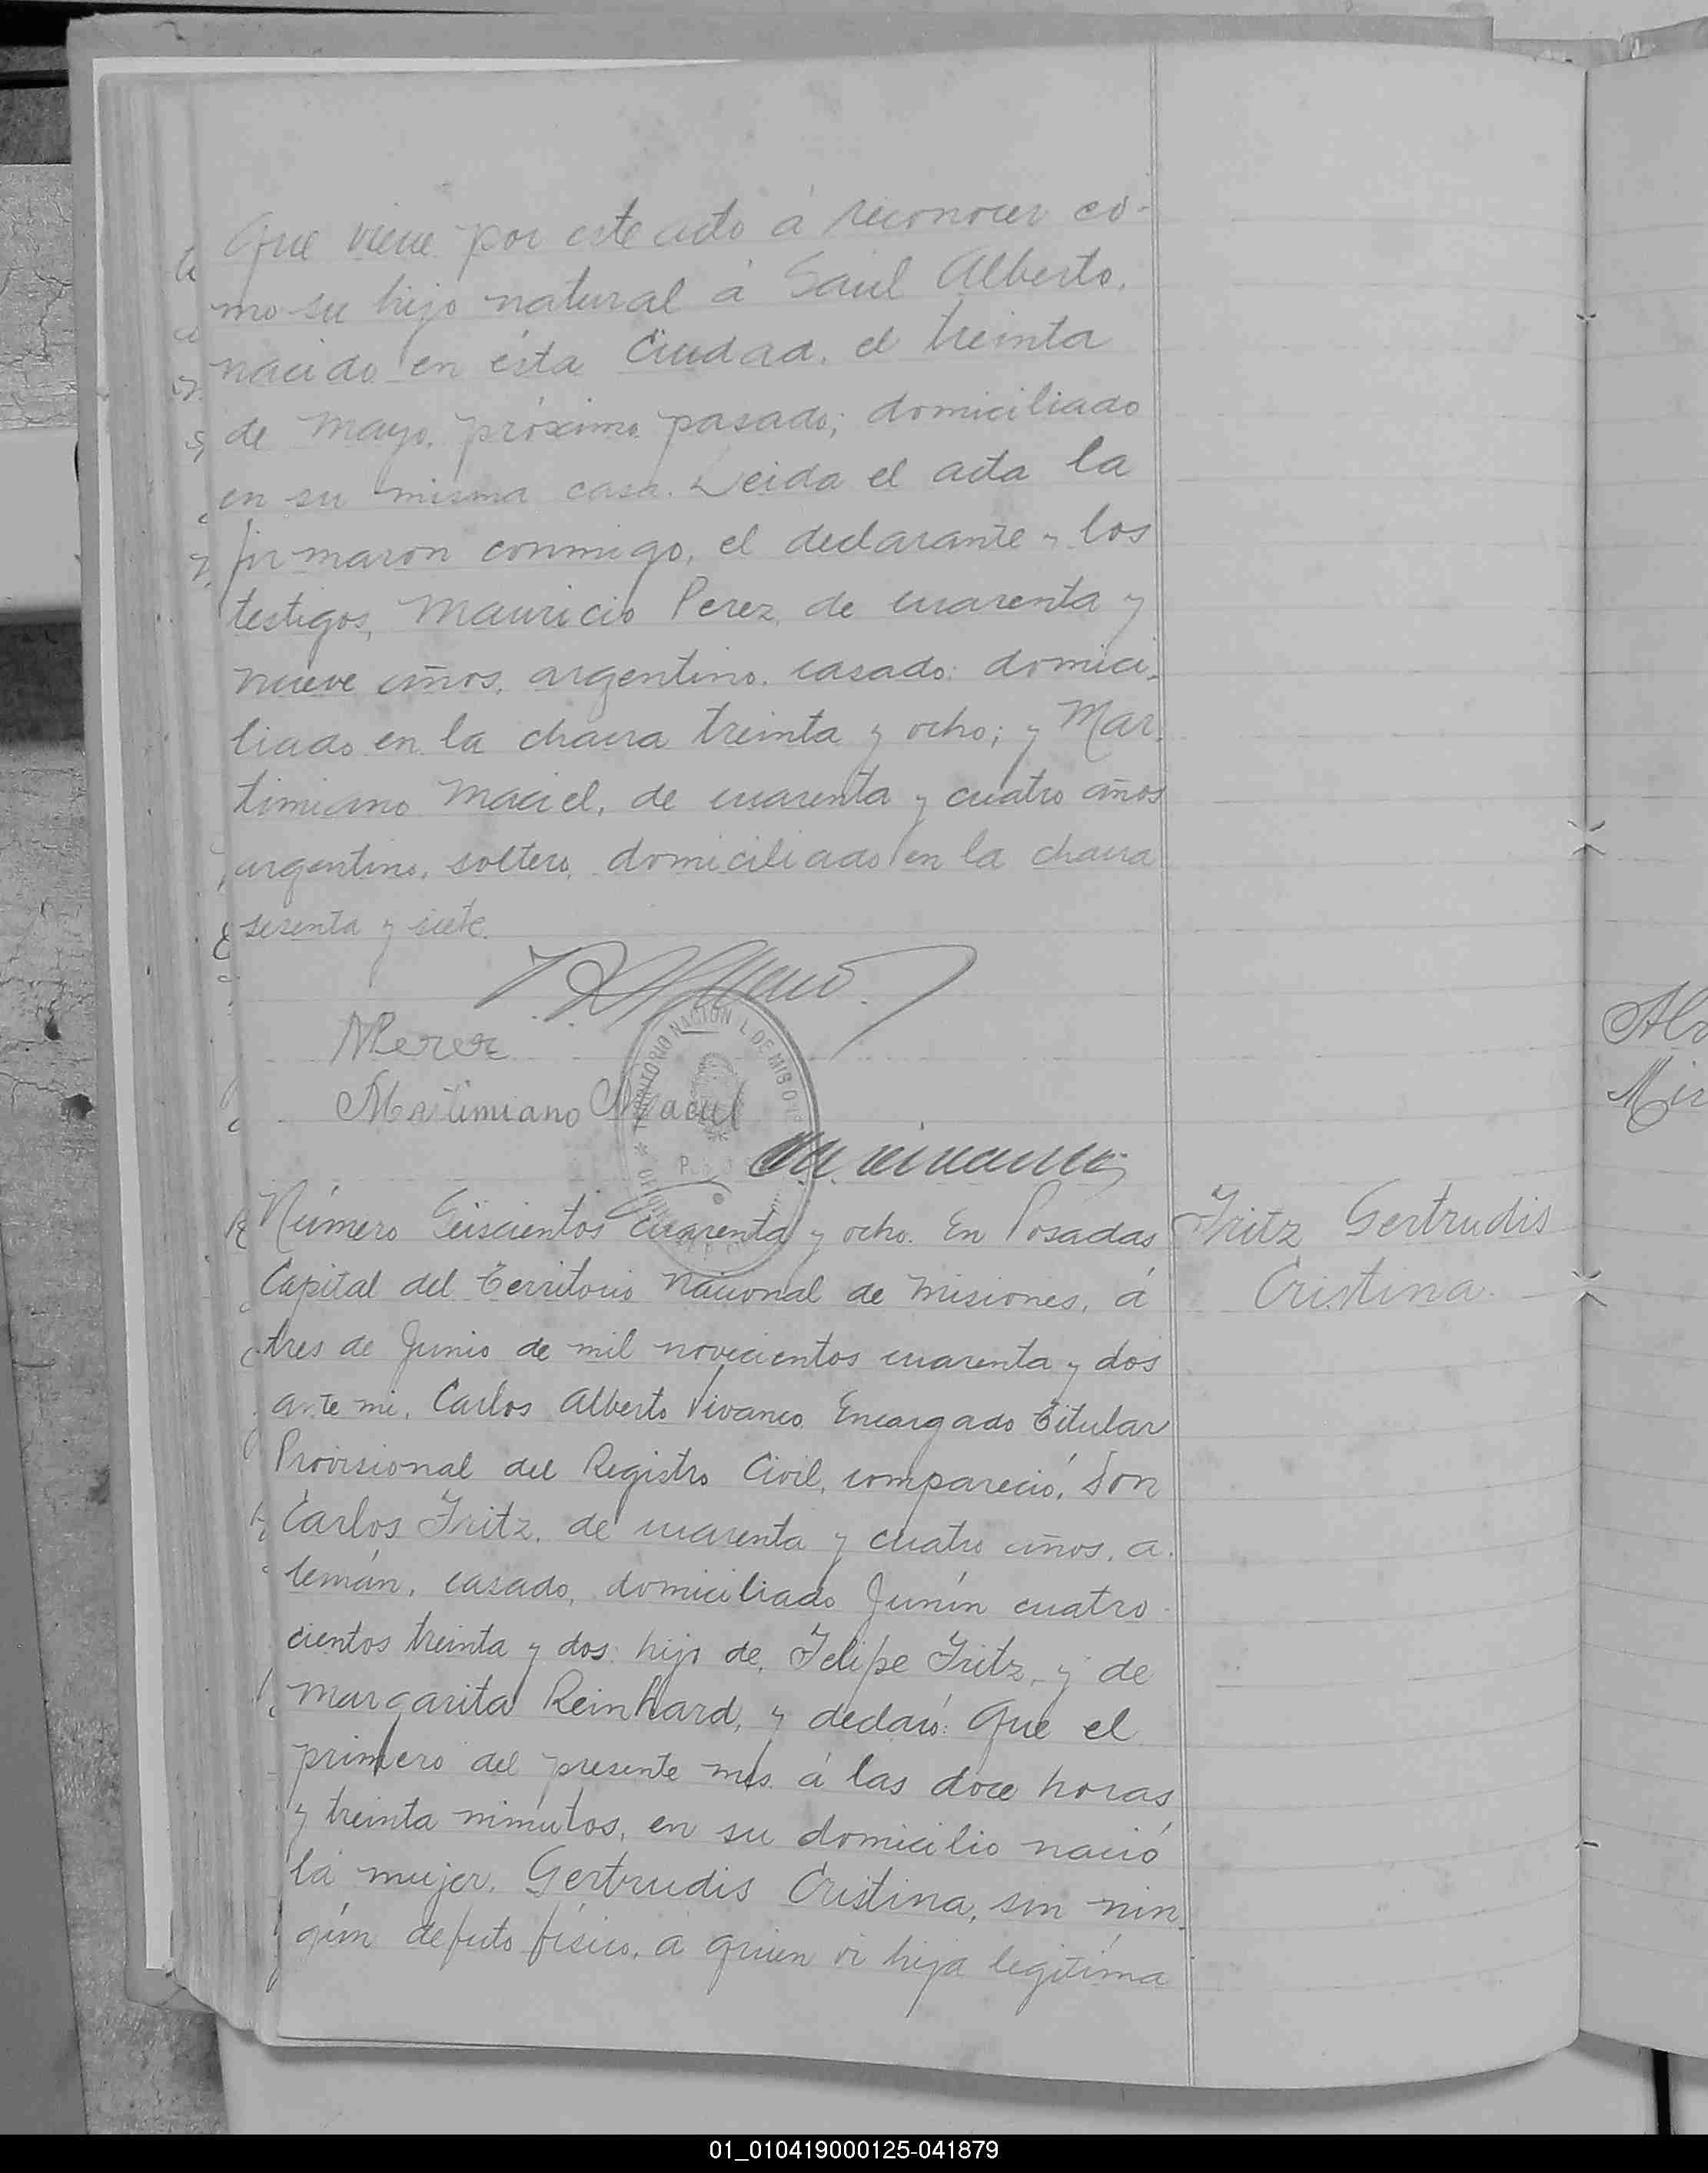 Que viene por este acto á reconocer co-
mo su hijo natural á Saúl Alberto,
nacido en ésta Ciudad, el treinta
de Mayo, próximo pasado; domiciliado
en su misma casa. Leida el acta la
firmaron conmigo, el declarante y los
testigos, Mauricio Perez, de cuarenta y
nueve años, argentino, casado; domici-
liado en la chacra treinta y ocho; y Mar-
timiano Maciel, de cuarenta y cuatro años
argentino, soltero, domiciliado en la chacra
sesenta y siete.
MPerez
Martimiano Maciel
TERRITORIO NACIONAL DE MISIONES
Número Seiscientos cuarenta y ocho. En Posadas
Capital del Territorio Nacional de Misiones, á
tres de Junio de mil novecientos cuarenta y dos
ante mi, Carlos Alberto Vivanco Encargado Titular
Provisional del Registro Civil, compareció, Don
Carlos Fritz, de cuarenta y cuatro años, a-
lemán, casado, domiciliado Junín cuatro-
cientos treinta y dos hijo de, Felipe Fritz, y de
Margarita Reinhard, y declaró: Que el
primero del presente mes á las doce horas
y treinta minutos, en su domicilio nació
la mujer, Gertrudis Cristina, sin nin-
gún defecto físico, a quien vi hija legitima
Fritz Gertrudis
Cristina.
01_010419000125-041879